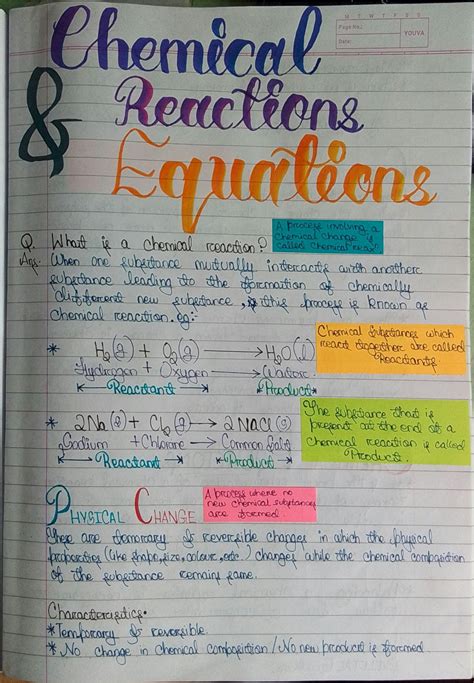 M T W T F S S
Page No.:
Date:
YOUVA
Chemical
& Reactions
Equations
Q. What is a chemical reaction?
A process involving a
chemical change is
called chemical
Ans- When one substance mutually interacts with another
substance leading to the formation of chemically
different new substance, this process is known as
chemical reaction. eg:-
Chemical substances which
react together are called
Reactants
* H₂(g) + O₂(g) → H₂O(l)
Hydrogen + Oxygen → Water
Reactant Product
The substance that is
present at the end of a
chemical reaction is called
Product.
* 2Na(s) + Cl₂(g) → 2NaCl(s)
Sodium + Chlorine → Common Salt
Reactant Product
PHYSICAL CHANGE
A process where no
new chemical substances
are formed.
These are temorary & reversible changes in which the physical
properties (like shape, size, colour, etc.) changes while the chemical composition
of the substance remains same.
Characteristics•
* Temporary & reversible.
* No change in chemical composition / No new product is formed.